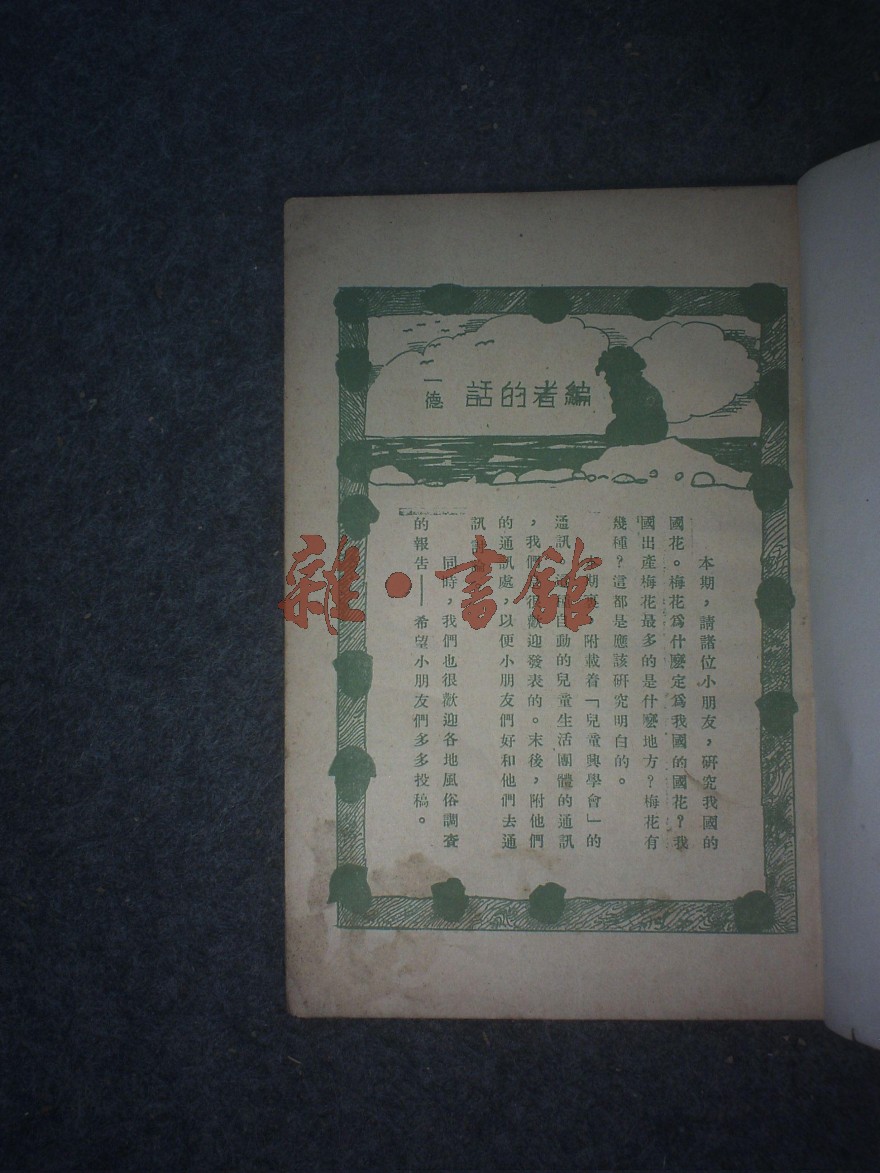 編者的話
一德
本期，請諸位小朋友，研究我國的
國花。梅花爲什麼定爲我國的國花？我
國出產梅花最多的是什麼地方？梅花有
幾種？這都是應該研究明白的。
期裏，附載着「兒童興學會」的
通訊，這種自動的兒童生活團體的通訊
，我們是很歡迎發表的。末後，附他們
的通訊處，以便小朋友們好和他們去通
訊
同時，我們也很歡迎各地風俗調查
的報告——希望小朋友們多多投稿。
雜·書館